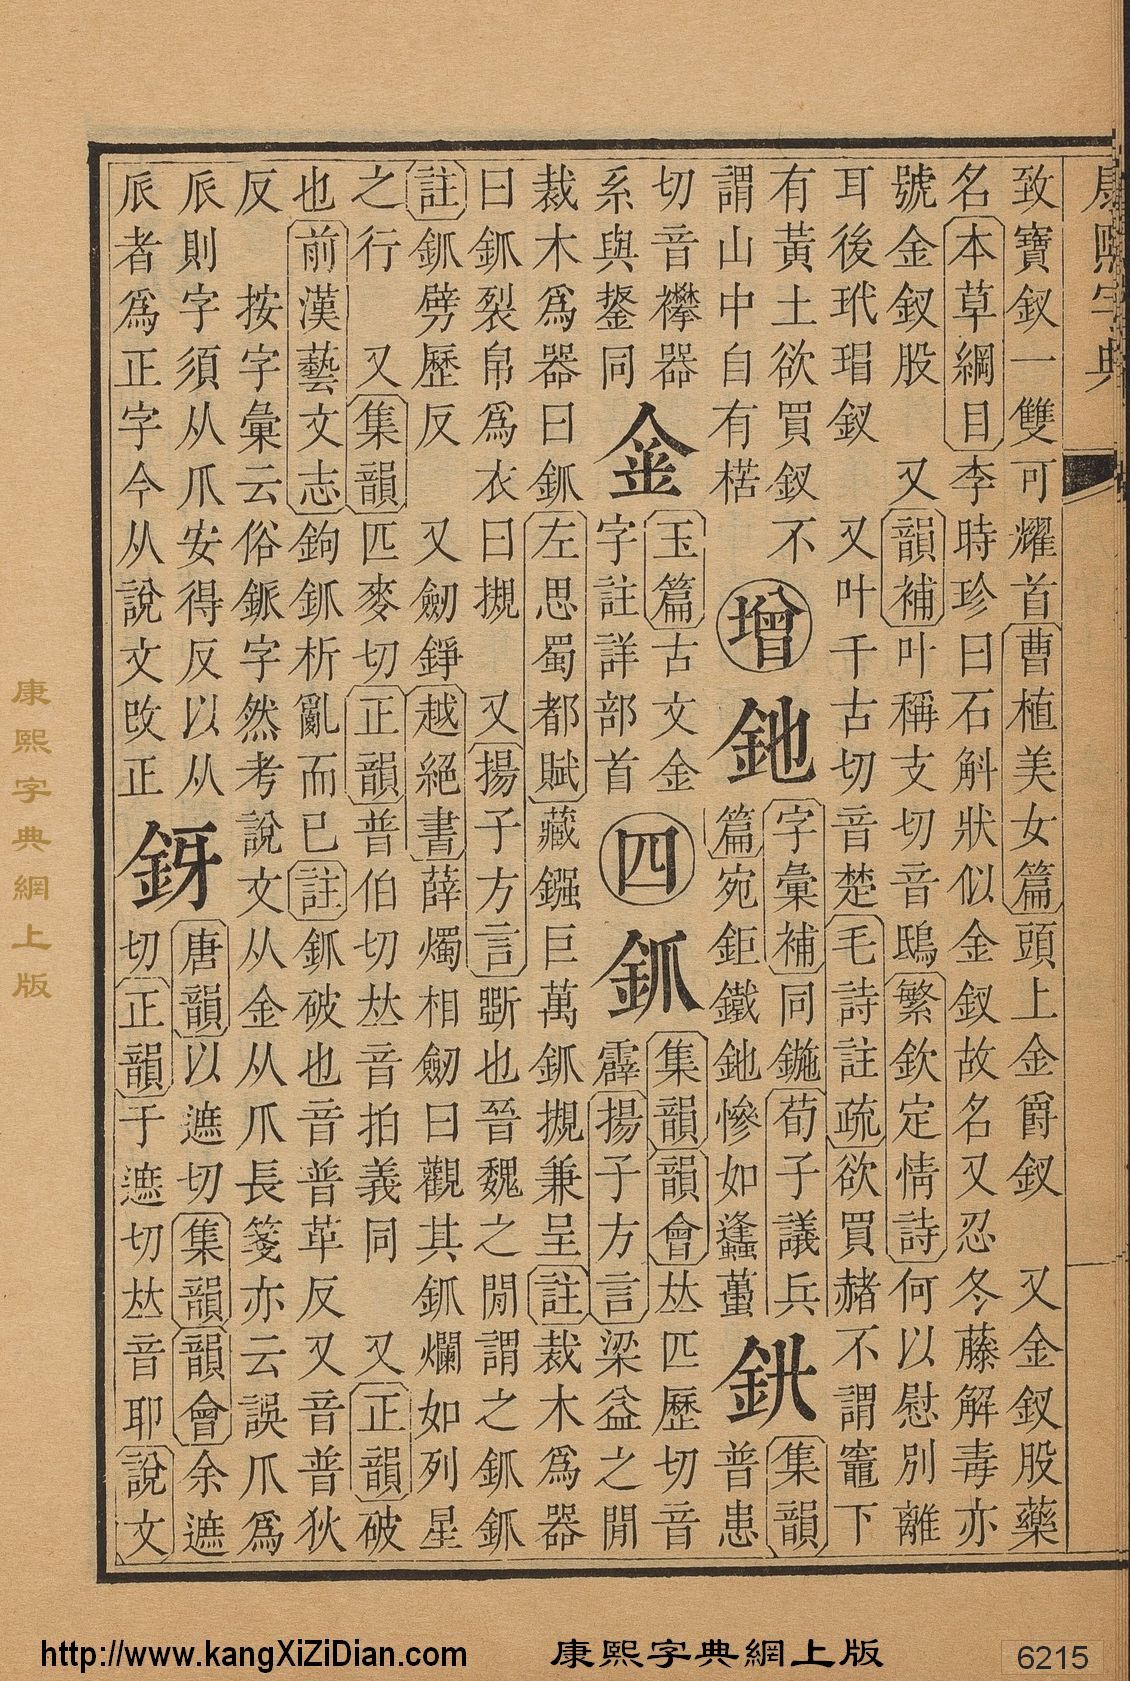 康熙字典
致寶釵一雙可耀首曹植美女篇頭上金爵釵 又金釵股藥
名本草綱目李時珍曰石斛狀似金釵故名又忍冬藤解毒亦
號金釵股 又韻補叶稱支切音鴟繁欽定情詩何以慰別離
耳後玳瑁釵 又叶千古切音楚毛詩註疏欲買赭不謂竈下
有黃土欲買釵不
謂山中自有楛
增
釶
字彙補同鍦荀子議兵
篇宛鉅鐵釶慘如蠭蠆
𨥨
集韻普患
切音襻器
系與鋬同
𨤾
玉篇古文金
字註詳部首
四
釽
集韻韻會𠀤匹歷切音
霹揚子方言梁益之閒
裁木爲器曰釽左思蜀都賦藏鏹巨萬釽摫兼呈註裁木爲器
曰釽裂帛爲衣曰摫 又揚子方言斲也晉魏之閒謂之釽釽
註釽劈歷反 又劒錚越絕書薛燭相劒曰觀其釽爛如列星
之行 又集韻匹麥切正韻普伯切𠀤音拍義同 又正韻破
也前漢藝文志鉤釽析亂而已註釽破也音普革反又音普狄
反 按字彙云俗鈲字然考說文从金从爪長箋亦云誤爪爲
𠂢則字須从爪安得反以从
𠂢者爲正字今从說文改正
釾
唐韻以遮切集韻韻會余遮
切正韻于遮切𠀤音耶說文
康熙字典網上版
http://www.kangXiZiDian.com 康熙字典網上版 6215